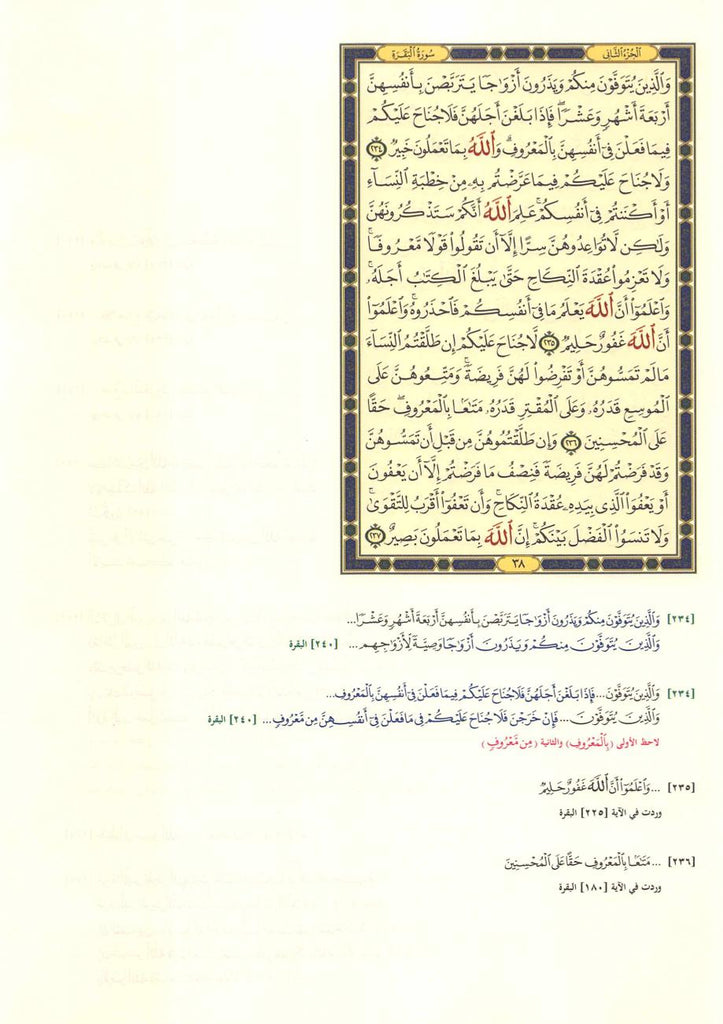 الجُزءُ الثَّانِي
سُورَةُ البَقَرَةِ
وَالَّذِينَ يُتَوَفَّوْنَ مِنكُمْ وَيَذَرُونَ أَزْوَاجًا يَتَرَبَّصْنَ بِأَنفُسِهِنَّ
أَرْبَعَةَ أَشْهُرٍ وَعَشْرًا ۖ فَإِذَا بَلَغْنَ أَجَلَهُنَّ فَلَا جُنَاحَ عَلَيْكُمْ
فِيمَا فَعَلْنَ فِي أَنفُسِهِنَّ بِالْمَعْرُوفِ ۗ وَاللَّهُ بِمَا تَعْمَلُونَ خَبِيرٌ ٢٣٤
وَلَا جُنَاحَ عَلَيْكُمْ فِيمَا عَرَّضْتُم بِهِ مِنْ خِطْبَةِ النِّسَاءِ
أَوْ أَكْنَنتُمْ فِي أَنفُسِكُمْ ۚ عَلِمَ اللَّهُ أَنَّكُمْ سَتَذْكُرُونَهُنَّ
وَلَٰكِن لَّا تُوَاعِدُوهُنَّ سِرًّا إِلَّا أَن تَقُولُوا قَوْلًا مَّعْرُوفًا ۚ
وَلَا تَعْزِمُوا عُقْدَةَ النِّكَاحِ حَتَّىٰ يَبْلُغَ الْكِتَابُ أَجَلَهُ ۚ
وَاعْلَمُوا أَنَّ اللَّهَ يَعْلَمُ مَا فِي أَنفُسِكُمْ فَاحْذَرُوهُ ۚ وَاعْلَمُوا
أَنَّ اللَّهَ غَفُورٌ حَلِيمٌ ٢٣٥ لَّا جُنَاحَ عَلَيْكُمْ إِن طَلَّقْتُمُ النِّسَاءَ
مَا لَمْ تَمَسُّوهُنَّ أَوْ تَفْرِضُوا لَهُنَّ فَرِيضَةً ۚ وَمَتِّعُوهُنَّ عَلَى
الْمُوسِعِ قَدَرُهُ وَعَلَى الْمُقْتِرِ قَدَرُهُ مَتَاعًا بِالْمَعْرُوفِ ۖ حَقًّا
عَلَى الْمُحْسِنِينَ ٢٣٦ وَإِن طَلَّقْتُمُوهُنَّ مِن قَبْلِ أَن تَمَسُّوهُنَّ
وَقَدْ فَرَضْتُمْ لَهُنَّ فَرِيضَةً فَنِصْفُ مَا فَرَضْتُمْ إِلَّا أَن يَعْفُونَ
أَوْ يَعْفُوَ الَّذِي بِيَدِهِ عُقْدَةُ النِّكَاحِ ۚ وَأَن تَعْفُوا أَقْرَبُ لِلتَّقْوَىٰ ۚ
وَلَا تَنسَوُا الْفَضْلَ بَيْنَكُمْ ۚ إِنَّ اللَّهَ بِمَا تَعْمَلُونَ بَصِيرٌ ٢٣٧
٣٨
[٢٣٤] وَالَّذِينَ يُتَوَفَّوْنَ مِنكُمْ وَيَذَرُونَ أَزْوَاجًا يَتَرَبَّصْنَ بِأَنفُسِهِنَّ أَرْبَعَةَ أَشْهُرٍ وَعَشْرًا...
وَالَّذِينَ يُتَوَفَّوْنَ مِنكُمْ وَيَذَرُونَ أَزْوَاجًا وَصِيَّةً لِّأَزْوَاجِهِم ... [٢٤٠] البقرة
[٢٣٤] وَالَّذِينَ يُتَوَفَّوْنَ...فَإِذَا بَلَغْنَ أَجَلَهُنَّ فَلَا جُنَاحَ عَلَيْكُمْ فِيمَا فَعَلْنَ فِي أَنفُسِهِنَّ بِالْمَعْرُوفِ...
وَالَّذِينَ يُتَوَفَّوْنَ...فَإِنْ خَرَجْنَ فَلَا جُنَاحَ عَلَيْكُمْ فِي مَا فَعَلْنَ فِي أَنفُسِهِنَّ مِن مَّعْرُوفٍ... [٢٤٠] البقرة
لاحظ الأولى (بِالْمَعْرُوفِ) والثانية (مِن مَّعْرُوفٍ)
[٢٣٥] ...وَاعْلَمُوا أَنَّ اللَّهَ غَفُورٌ حَلِيمٌ
وردت في الآية [٢٢٥] البقرة
[٢٣٦] ...مَتَاعًا بِالْمَعْرُوفِ حَقًّا عَلَى الْمُحْسِنِينَ
وردت في الآية [١٨٠] البقرة